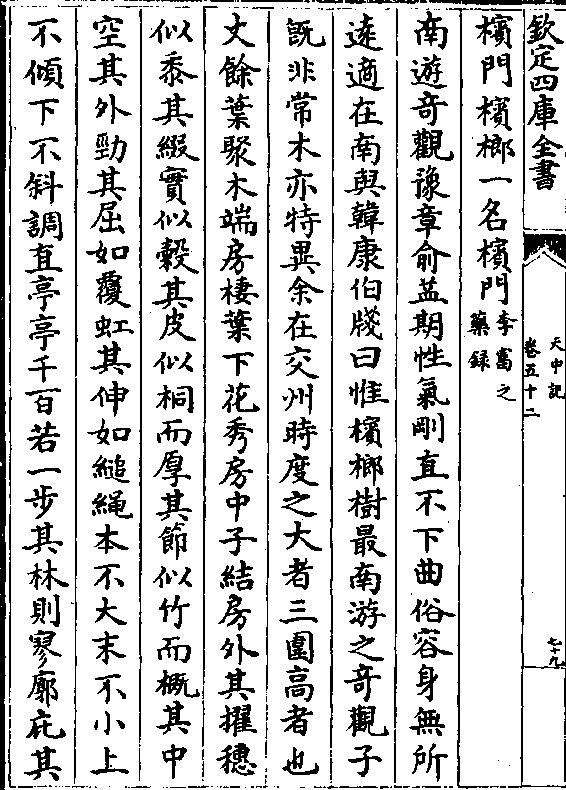 欽定四庫全書
天中記
卷五十二
七十九
檳門檳榔一名檳門李當之
藥録
南遊奇觀豫章俞益期性氣剛直不下曲俗容身無所
遠適在南與韓康伯牋曰惟檳榔樹最南游之奇觀子
既非常木亦特異余在交州時度之大者三圍高者也
丈餘葉聚木端房棲葉下花秀房中子結房外其擢穗
似黍其綴實似穀其皮似桐而厚其節似竹而概其中
空其外勁其屈如覆虹其伸如縋繩本不大末不小上
不傾下不斜調直亭亭千百若一步其林則寥廓庇其